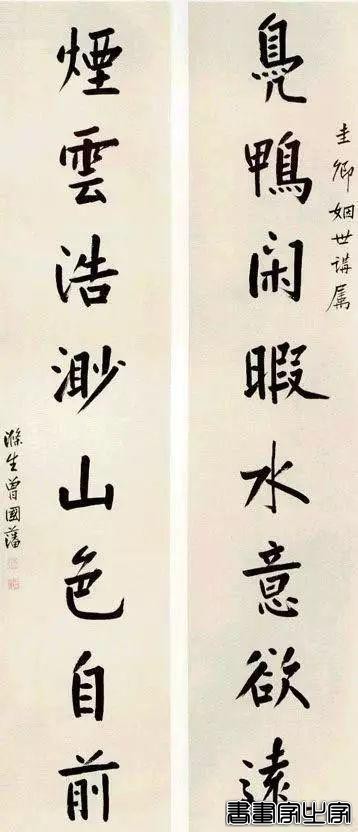 圭卿姻世講屬
鳧鴨閑暇水意欲遠
煙雲浩渺山色自前
滌生曾國藩
書畫家必字